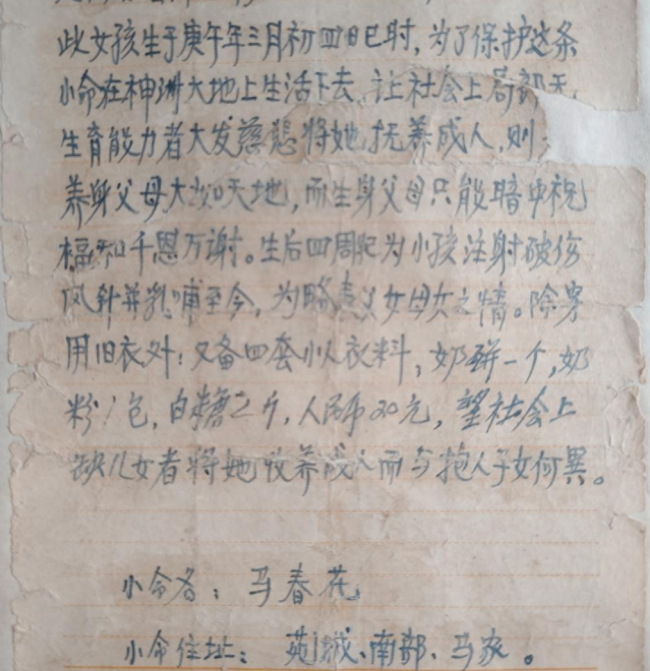 此女孩生于庚午年三月初四日巳时,为了保护这条
小命在神洲大地上生活下去、让社会上局部无
生育能力者大发慈悲将她抚养成人,则
养身父母大如天地,而生身父母只能暗中祝
福和千恩万谢。生后四周已为小孩注射破伤
风针并乳哺至今,为略表父女母女之情。除穿
用旧衣外:又备四套小人衣料,奶瓶一个,奶
粉1包,白糖2斤,人民币20元,望社会上
缺儿女者将她收养成人而与抱人子女何异。
小命名:马春花
小命住址:苑城、南部、马家。